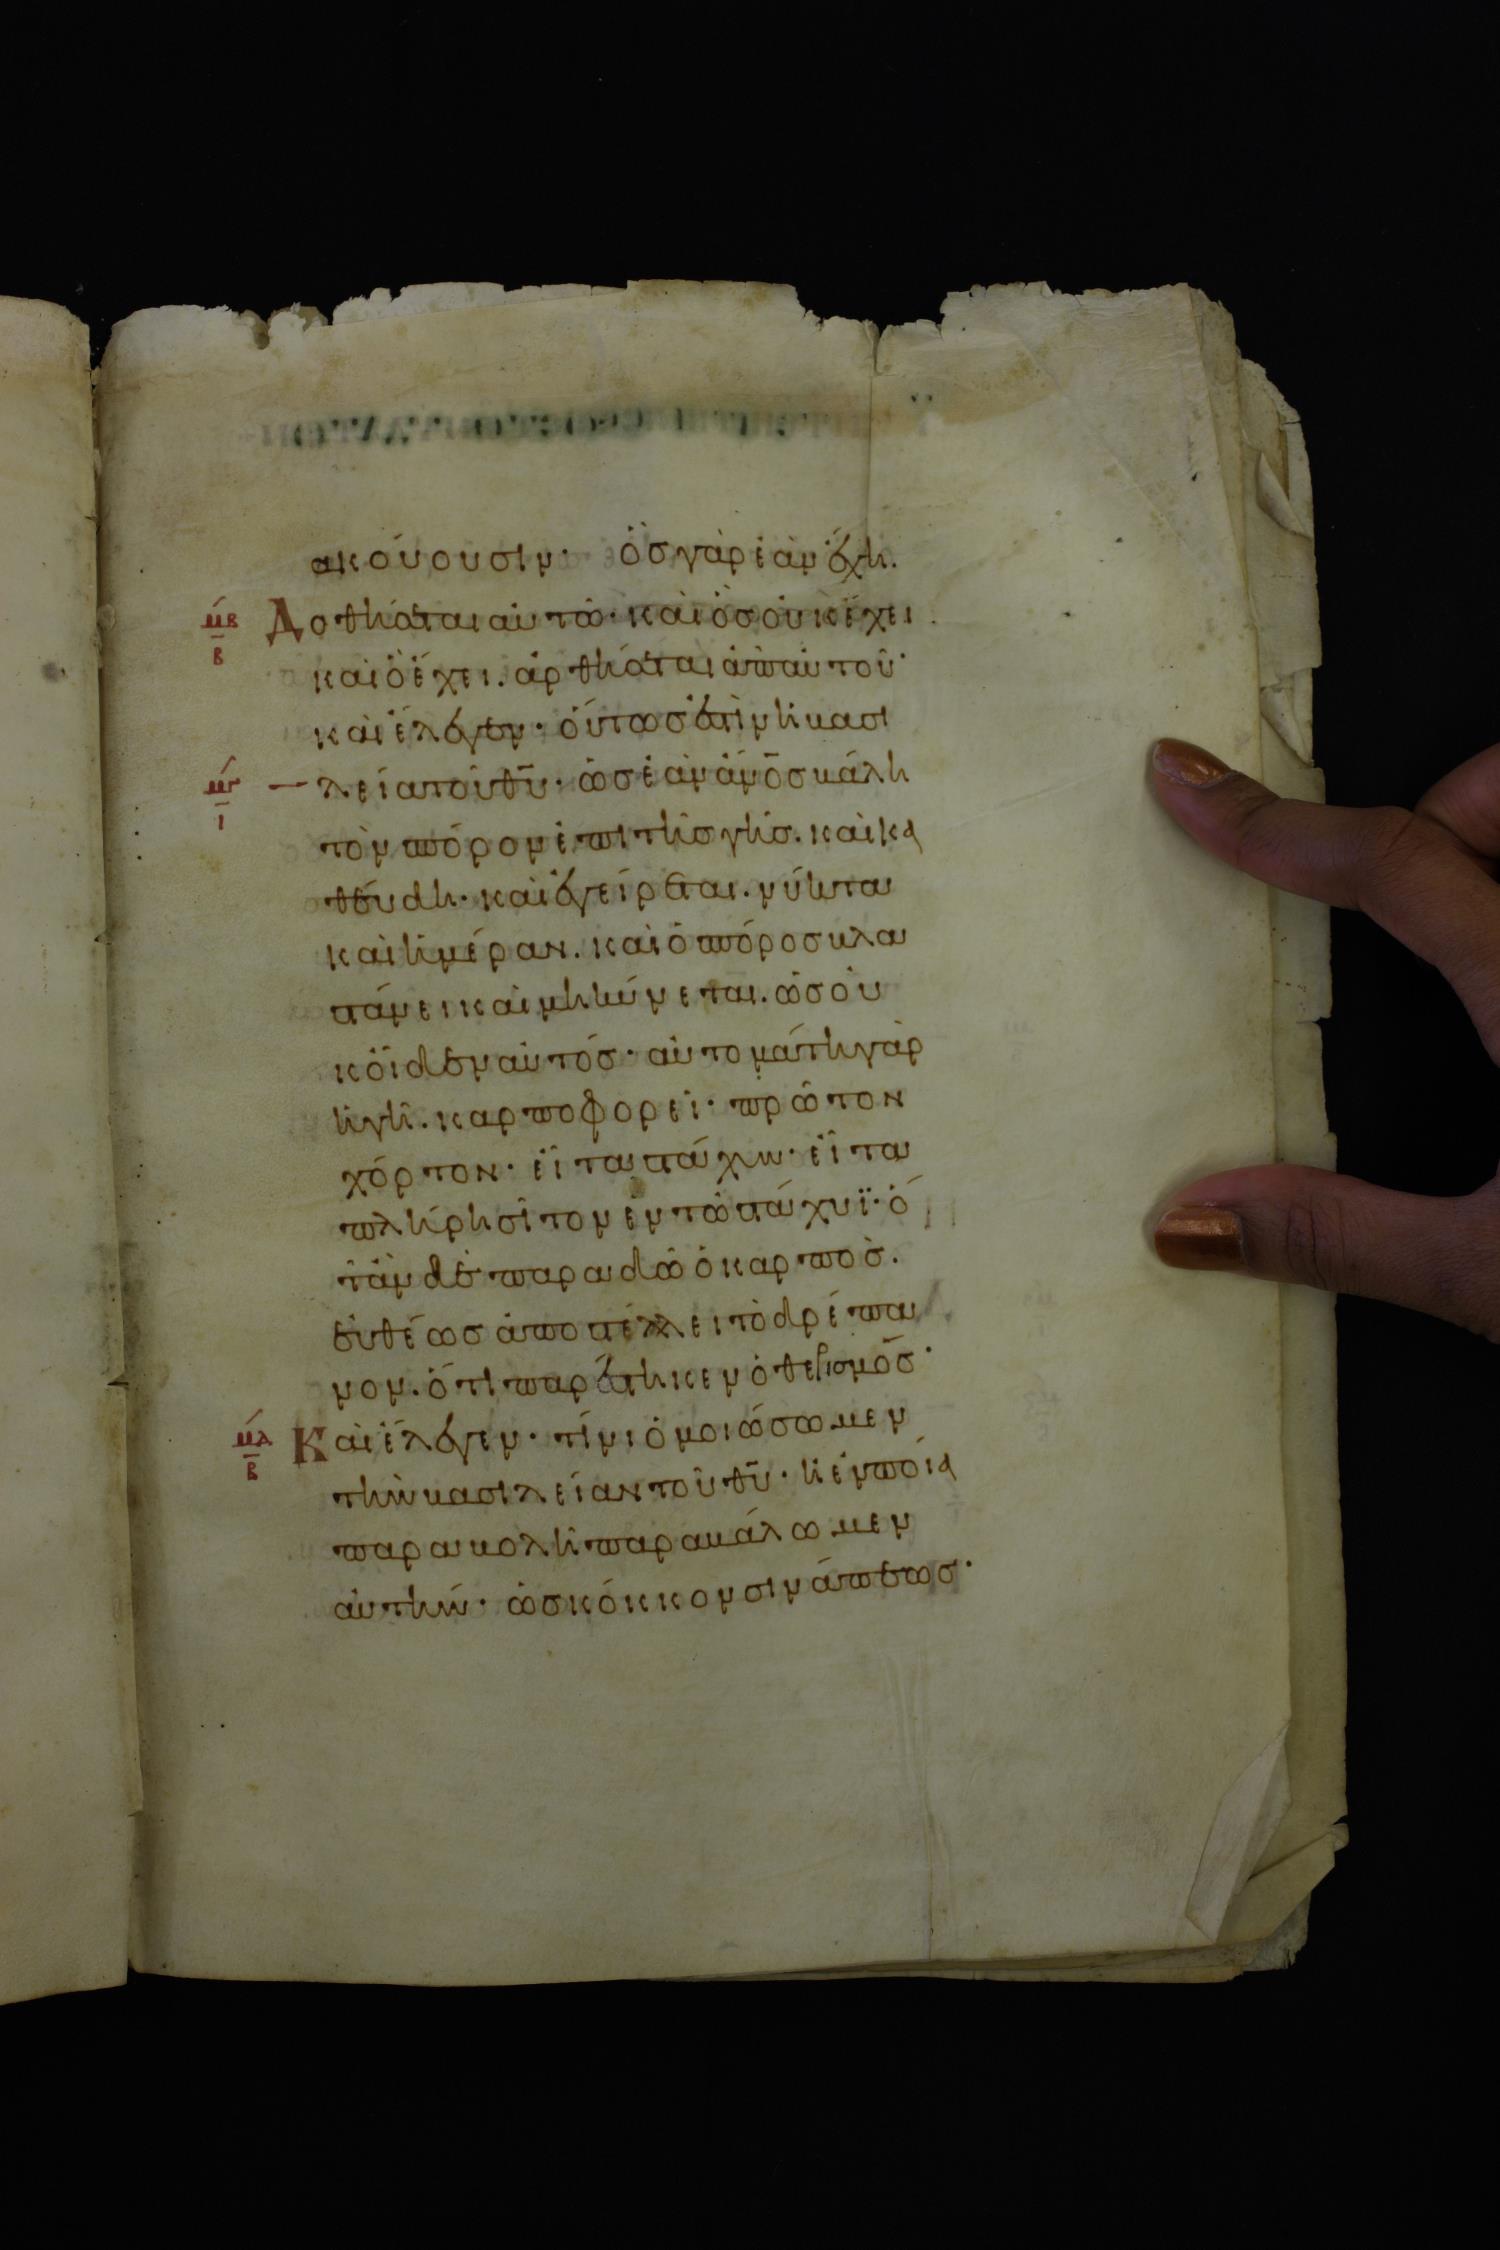 ακούουσιν· ὃσ γὰρ ἐὰν ἔχη.
μβ β Δοθήσεται αὐτῶ· καὶ ὃσ οὐκ ἔχει.
καὶ ὃ ἔχει. ἀρθήσεται ἀπ αὐτοῦ·
καὶ ἔλεγεν· οὕτωσ ἐστὶν ἡ βασι
μγ ι λεία τοῦ θυ· ὡσ ἐὰν ἄνοσ βάλη
τὸν σπόρον ἐπι τῆσ γῆσ. καὶ κα
θεύδη· καὶ ἐγείρεται. νύκτα
καὶ ἡμέραν. καὶ ὁ σπόροσ βλα
στάνει καὶ μηκύνεται. ὡσ οὐ
κ οἶδεν αὐτόσ· αὐτομάτη γὰρ
ἡ γῆ. καρποφορεῖ· πρῶτον
χόρτον· εἶτα στάχυν· εἶτα
πλήρη σῖτον ἐν τῶ στάχυϊ· ὅ
τὰν δὲ παραδῶ ὁ καρποσ.
εὐθέωσ ἀποστέλλει τὸ δρέπα
νον. ὅτι παρέστηκεν ὁ θερισμόσ·
μδ β Καὶ ἔλεγεν· τίνι ὁμοιώσωμεν
τὴν βασιλείαν τοῦ θυ· ἢ ἐν ποία
παραβολῆ παραβάλωμεν
αὐτήν· ὡσ κόκκον σινάπεωσ·